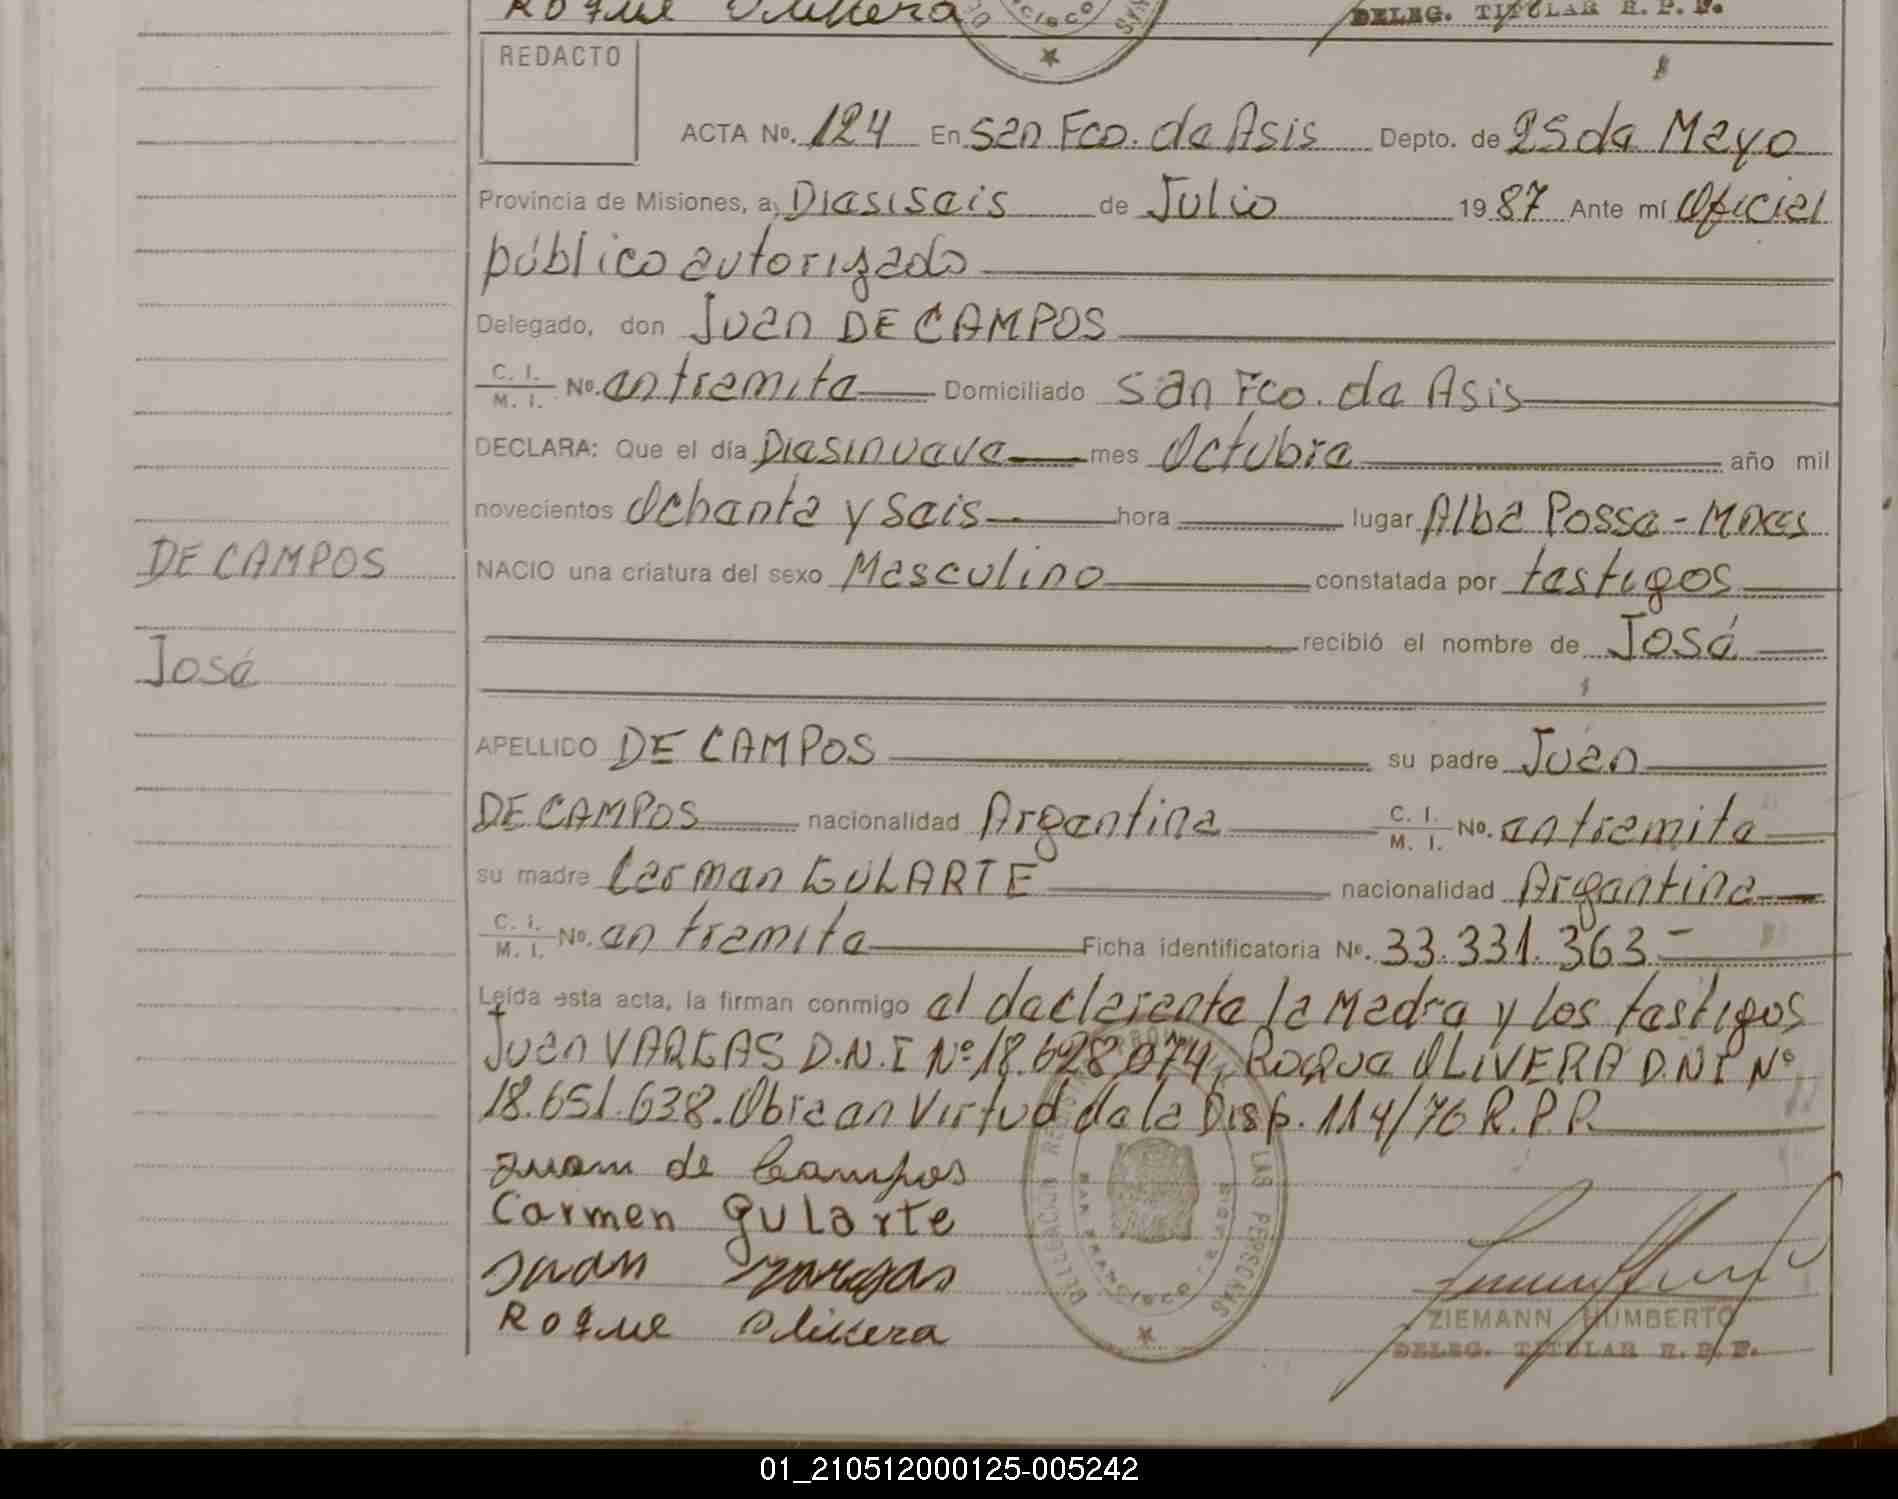 Roque Olivera
DELEG. TITULAR R. P. P.
REDACTO
ACTA Nº. 124 En San Fco. de Asis Depto. de 25 de Mayo
Provincia de Misiones, a Diesiseis de Julio 1987 Ante mí Oficial
público autorizado
Delegado, don Juan DE CAMPOS
C. I. / M. I. Nº. en tramite Domiciliado San Fco. de Asis
DECLARA: Que el día Diesinueve mes Octubre año mil
novecientos Ochenta y Seis hora lugar Alba Posse - Mnes
DE CAMPOS
NACIO una criatura del sexo Masculino constatada por testigos
José
recibió el nombre de José
APELLIDO DE CAMPOS su padre Juan
DE CAMPOS nacionalidad Argentina C. I. / M. I. Nº. en tramite
su madre Carmen GULARTE nacionalidad Argentina
C. I. / M. I. Nº. en tramite Ficha identificatoria Nº. 33.331.363-
Leída esta acta, la firman conmigo el declarante la Madre y los testigos
Juan VARGAS D.N.I Nº 18.628.074, Roque OLIVERA D.N.I Nº
18.651.638. Obra en Virtud de la Disp. 114/76 R.P.P.
Juan de Campos
Carmen Gularte
Juan Vargas
Roque Olivera
DELEGACION LAS PERSONAS
SAN FRANCISCO DE ASIS
ZIEMANN HUMBERTO
DELEG. TITULAR R. P. P.
01_210512000125-005242